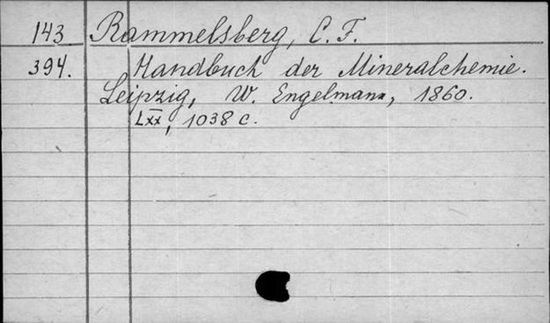 143 Rammelsberg, C. F.
394. Handbuch der Mineralchemie.
Leipzig, W. Engelmann, 1860.
LXX, 1038 c.